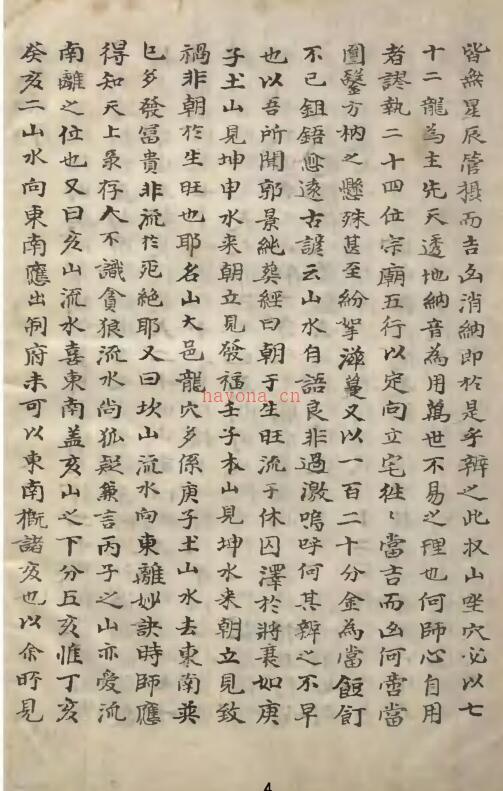 皆無星辰管摄而吉凶消納即於是乎辨之此扠山坐穴必以七
十二龍為主先天透地納音為用萬世不易之理也何師心自用
者謬執二十四位宗廟五行以定向立宅徃〻當吉而凶何啻當
圓鑿方枘之懸殊甚至紛挐滋蔓又以一百二十分金為當餖飣
不已鉏鋙愈遠古諺云山水自語良非過激嗚呼何其辨之不早
也以吾所聞郭景純葬經曰朝于生旺流于休囚澤於將衰如庚
子土山見坤申水来朝立見發福壬子木山見坤水来朝立見致
禍非朝於生旺也耶名山大邑龍穴多係庚子土山水去東南葬
已多發富貴非流於死絶耶又曰坎山流水向東離妙訣時師應
得知天上录存人不識貪狼流水尚狐疑兼言丙子之山亦愛流
南離之位也又曰亥山流水喜東南盖亥山之下分五亥惟丁亥
癸亥二山水向東南應出制府未可以東南概諸亥也以余所見
hayona.cn
4